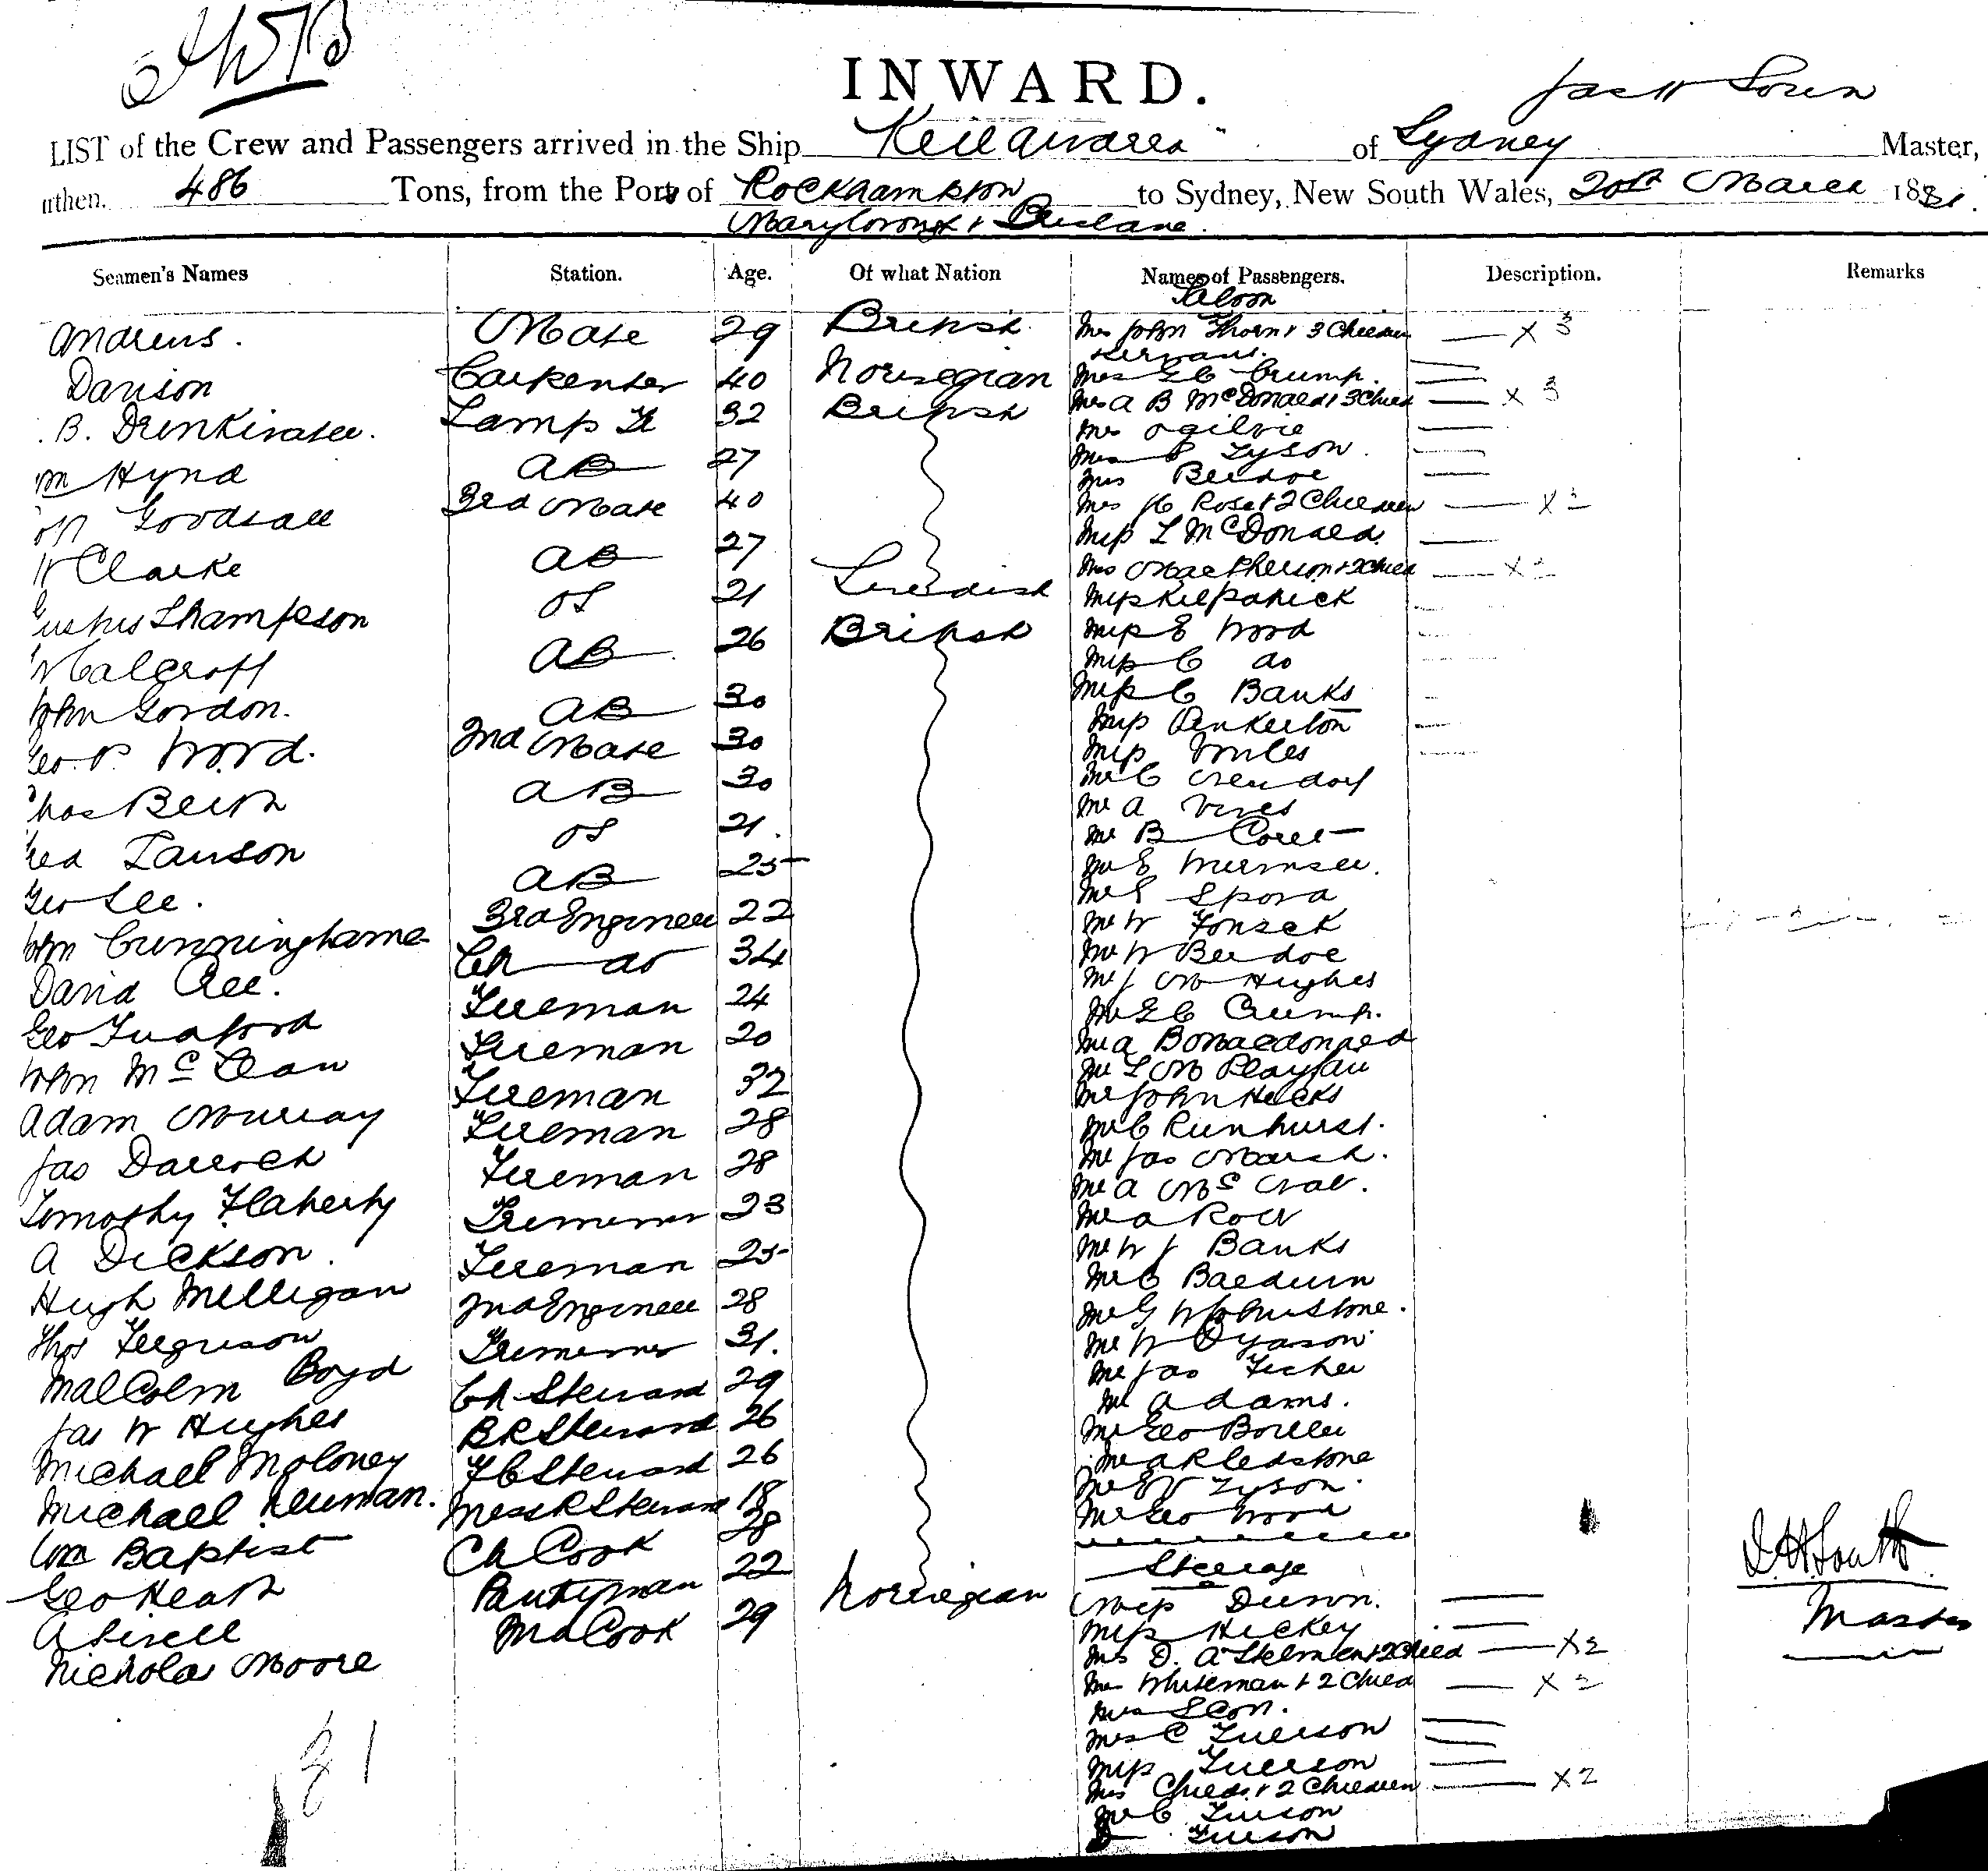 INWARD.
LIST of the Crew and Passengers arrived in the Ship Keilawarra of Sydney Master,
uthen. 486 Tons, from the Ports of Rockhampton to Sydney, New South Wales, 20th March 1881.
Maryboro' & Brisbane.
Seamen's Names Station. Age. Of what Nation Names of Passengers. Description. Remarks
Saloon
Andrews. Mate 29 British Mrs John Thorn & 3 Children X 3
Servant.
Davison Carpenter 40 Norwegian Mrs G C Crump.
B. Drinkwater. Lamp Tr 32 British Mrs A B McDonald & 3 Child X 3
Mrs Ogilvie
m Hynd AB 27 Mrs Tyson.
Mrs Beddoe
Goodsall 3rd Mate 40 Mrs H Rose & 2 Children X 2
Miss L McDonald.
Clarke AB 27 Mrs MacPherson & 2 Child X 2
ustus Thampson OS 21 Swedish Miss Kilpatrick
Calcroft AB 26 British Miss E Wood
Miss C do
John Gordon. AB 30 Miss C Banks
Miss Pinkerton
Geo. P. Wood. 2nd Mate 30 Miss Miles
Mr C
has Beith AB 30 Mr A Vines
red Lawson OS 21. Mr B
Mr E
Geo Lee. AB 25 Mr E Spora
John Cunninghame 3rd Engineer 22 Mr W Fonsek
David Cree. Ch do 34 Mr W Beddoe
Mr J M Hughes
Geo Tudford Fireman 24 Mr G C Crump.
John McLean Fireman 20 Mr A B Macdonald
Mr L M Playfair
Adam Murray Fireman 32 Mr John Hicks
Jas Darroch Fireman 28 Mr C Rienhurst.
Mr Jas Marsh.
Timothy Flaherty Fireman 28 Mr A Mc
A Dickson. Trimmer 23 Mr A Row
Mr W J Banks
Hugh Milligan Fireman 25 Mr C Baldwin
Thos Ferguson 2nd Engineer 28 Mr G W Johnstone.
Malcolm Boyd Trimmer 31. Mr W Dyason
Mr Jas Fisher
Jas W Hughes Ch Steward 29 Mr Adams.
Michael Moloney B R Steward 26 Mr Geo Butler
Michael Neuman. F C Steward 26 Mr A R Ledstone
Mr E V Tyson.
Wm Baptist Mess R Steward 18 Mr Geo Wood
Geo Heath Ch Cook 28
A Sivell Pantryman 22 Steerage
Nicholas Moore 2nd Cook 29 Norwegian Miss Dunn.
Miss Hickey
Mrs D. A & 2 Child X 2
Mrs Whiteman & 2 Child X 2
Mrs Scott.
Mrs C Tuerson
Miss Tuerson
Mrs Childs & 2 Children X 2
Mr C Tuerson
D Tuerson
Master